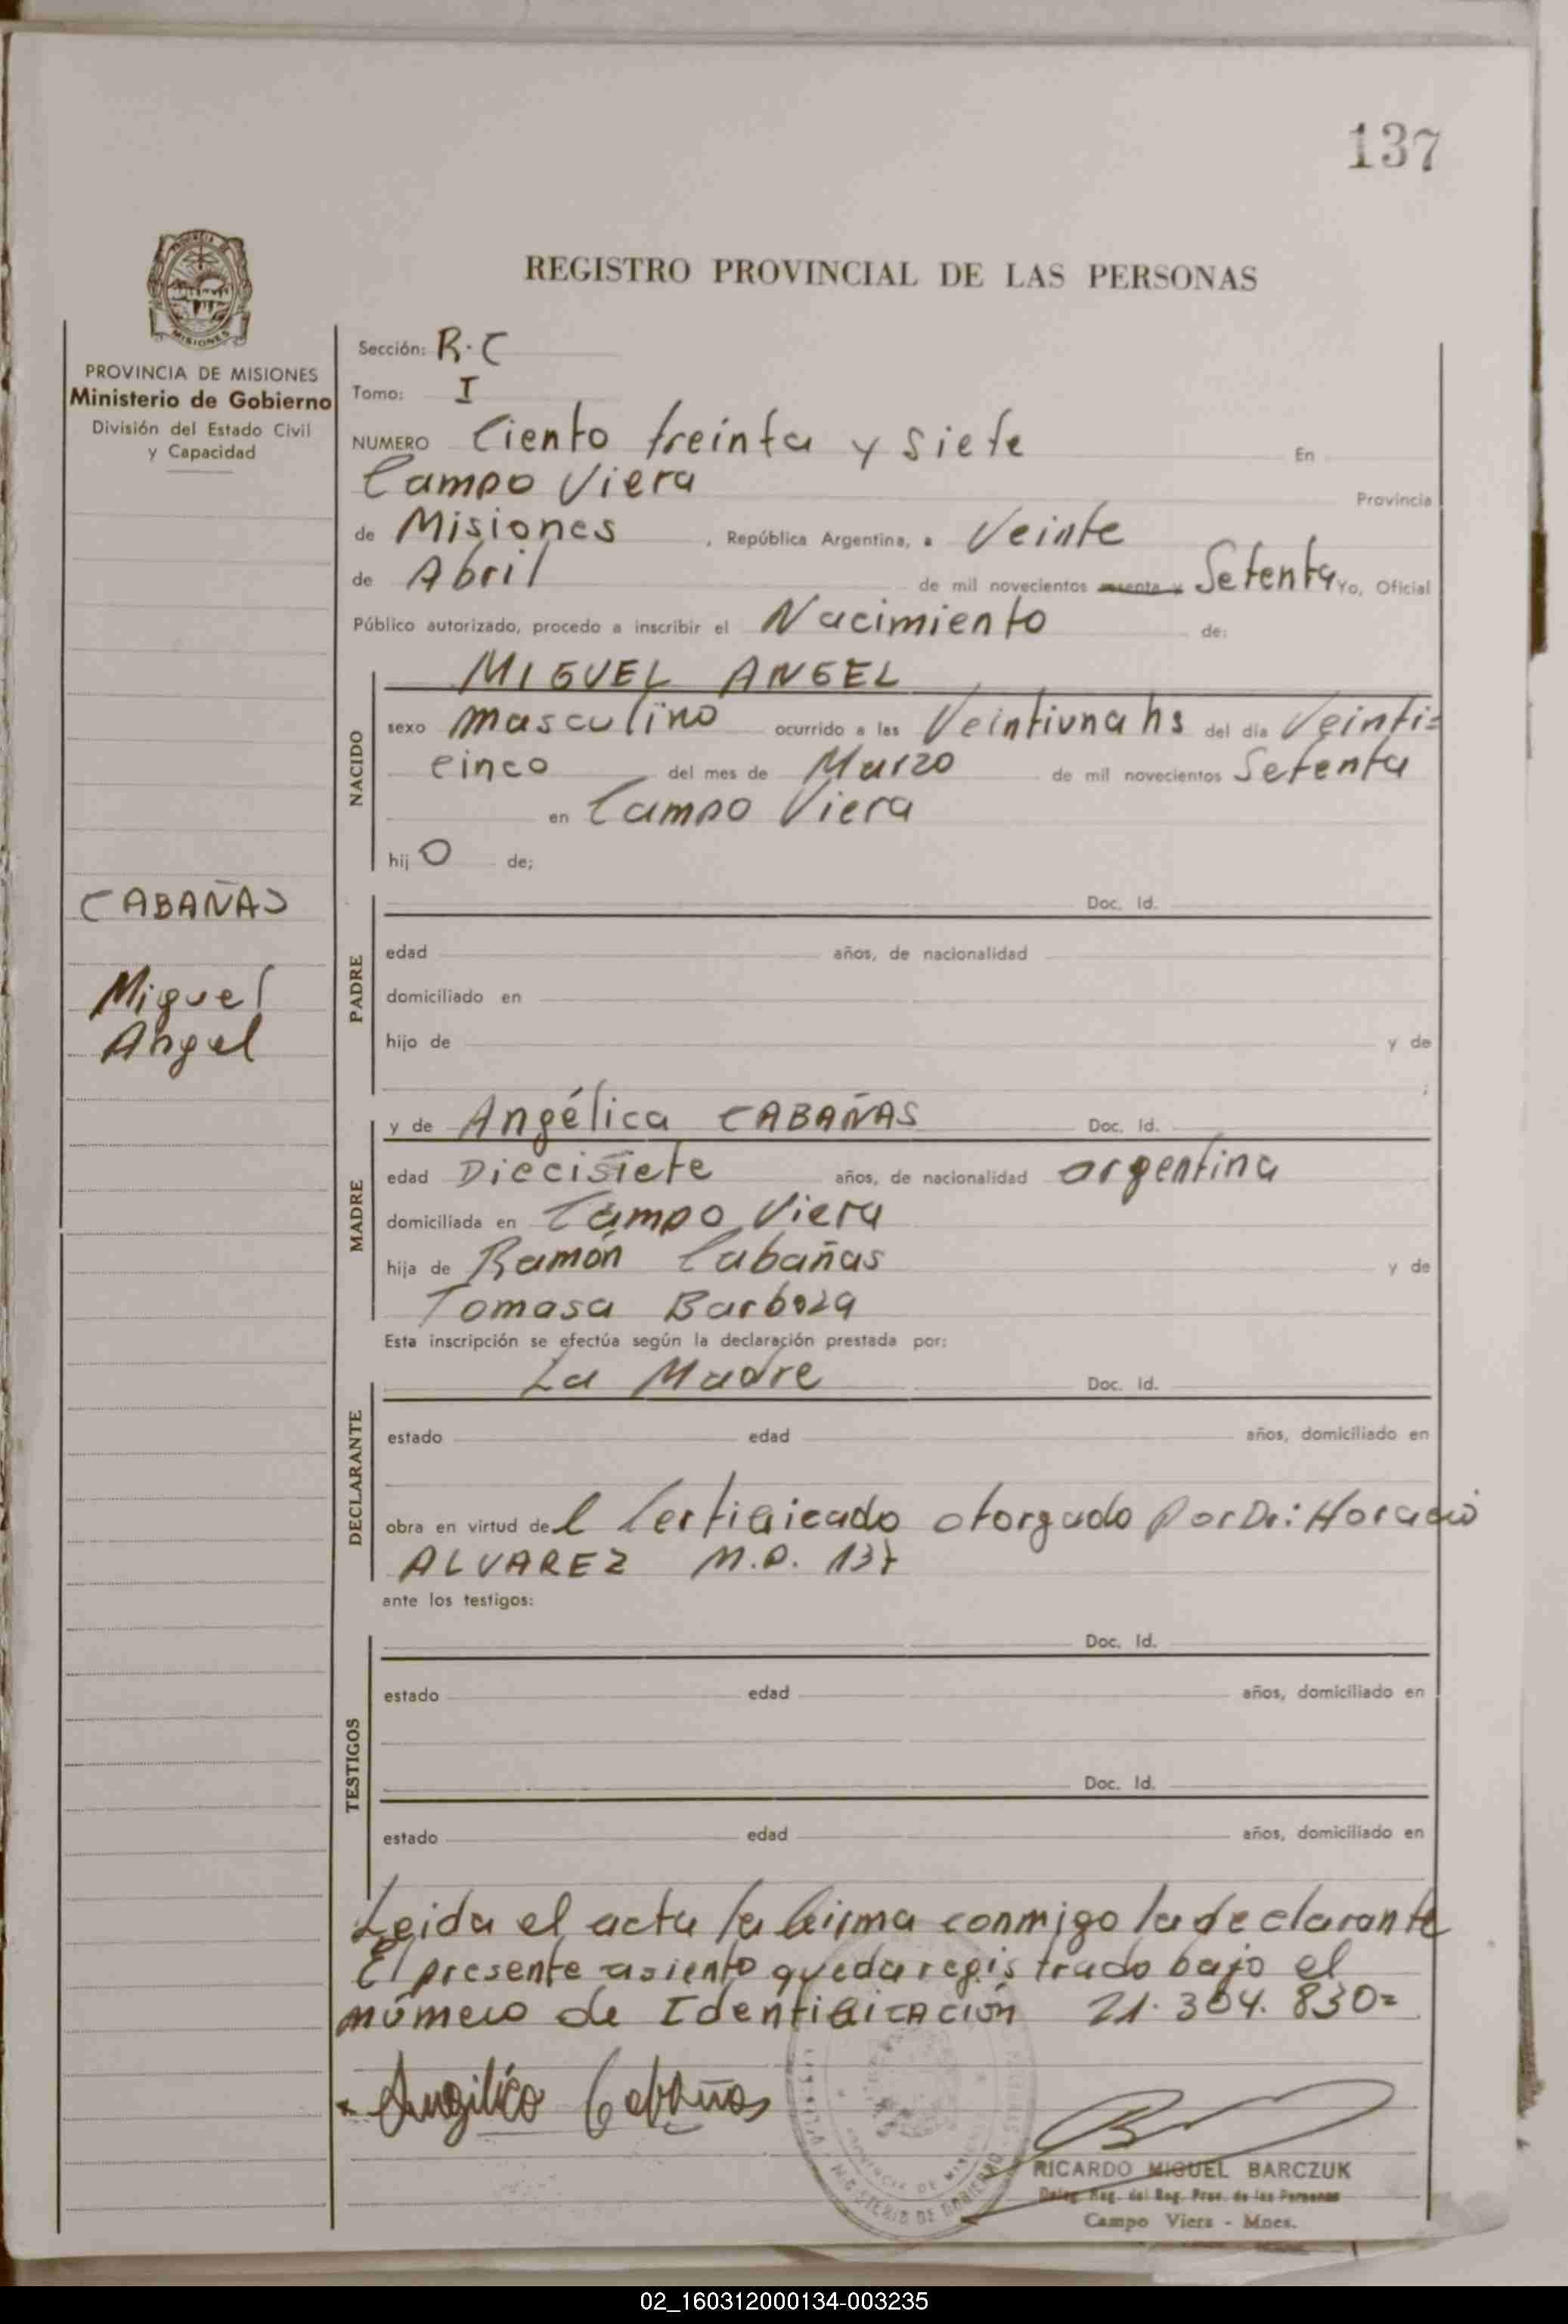 137
REGISTRO PROVINCIAL DE LAS PERSONAS
MISIONES
PROVINCIA DE MISIONES
Ministerio de Gobierno
División del Estado Civil
y Capacidad
CABAÑAS
Miguel
Angel
Sección: R.C
Tomo: I
NUMERO Ciento treinta y siete En
Campo Viera Provincia
de Misiones , República Argentina, a Veinte
de Abril de mil novecientos Setenta Yo, Oficial
Público autorizado, procedo a inscribir el Nacimiento de:
NACIDO
MIGUEL ANGEL
sexo masculino ocurrido a las Veintiuna hs del día Veinti=
cinco del mes de Marzo de mil novecientos Setenta
en Campo Viera
hijo de;
PADRE
Doc. Id.
edad años, de nacionalidad
domiciliado en
hijo de y de
;
MADRE
y de Angélica CABAÑAS Doc. Id.
edad Diecisiete años, de nacionalidad argentina
domiciliada en Campo Viera
hija de Ramón Cabañas y de
Tomasa Barboza
Esta inscripción se efectúa según la declaración prestada por:
DECLARANTE
La Madre Doc. Id.
estado edad años, domiciliado en
obra en virtud del Certificado otorgado Por Dr: Horacio
ALVAREZ M.P. 137
ante los testigos:
TESTIGOS
Doc. Id.
estado edad años, domiciliado en
Doc. Id.
estado edad años, domiciliado en
Leida el acta la firma conmigo la declarante
El presente asiento queda registrado bajo el
número de Identificación 21.304.830=
Angélica Cabañas
RICARDO MIGUEL BARCZUK
Deleg. Reg. del Reg. Prov. de las Personas
Campo Viera - Mnes.
02_160312000134-003235